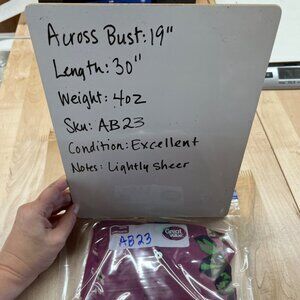 Across Bust: 19"
Length: 30"
Weight: 4oz
Sku: AB23
Condition: Excellent
Notes: Lightly Sheer
AB23
Great Value